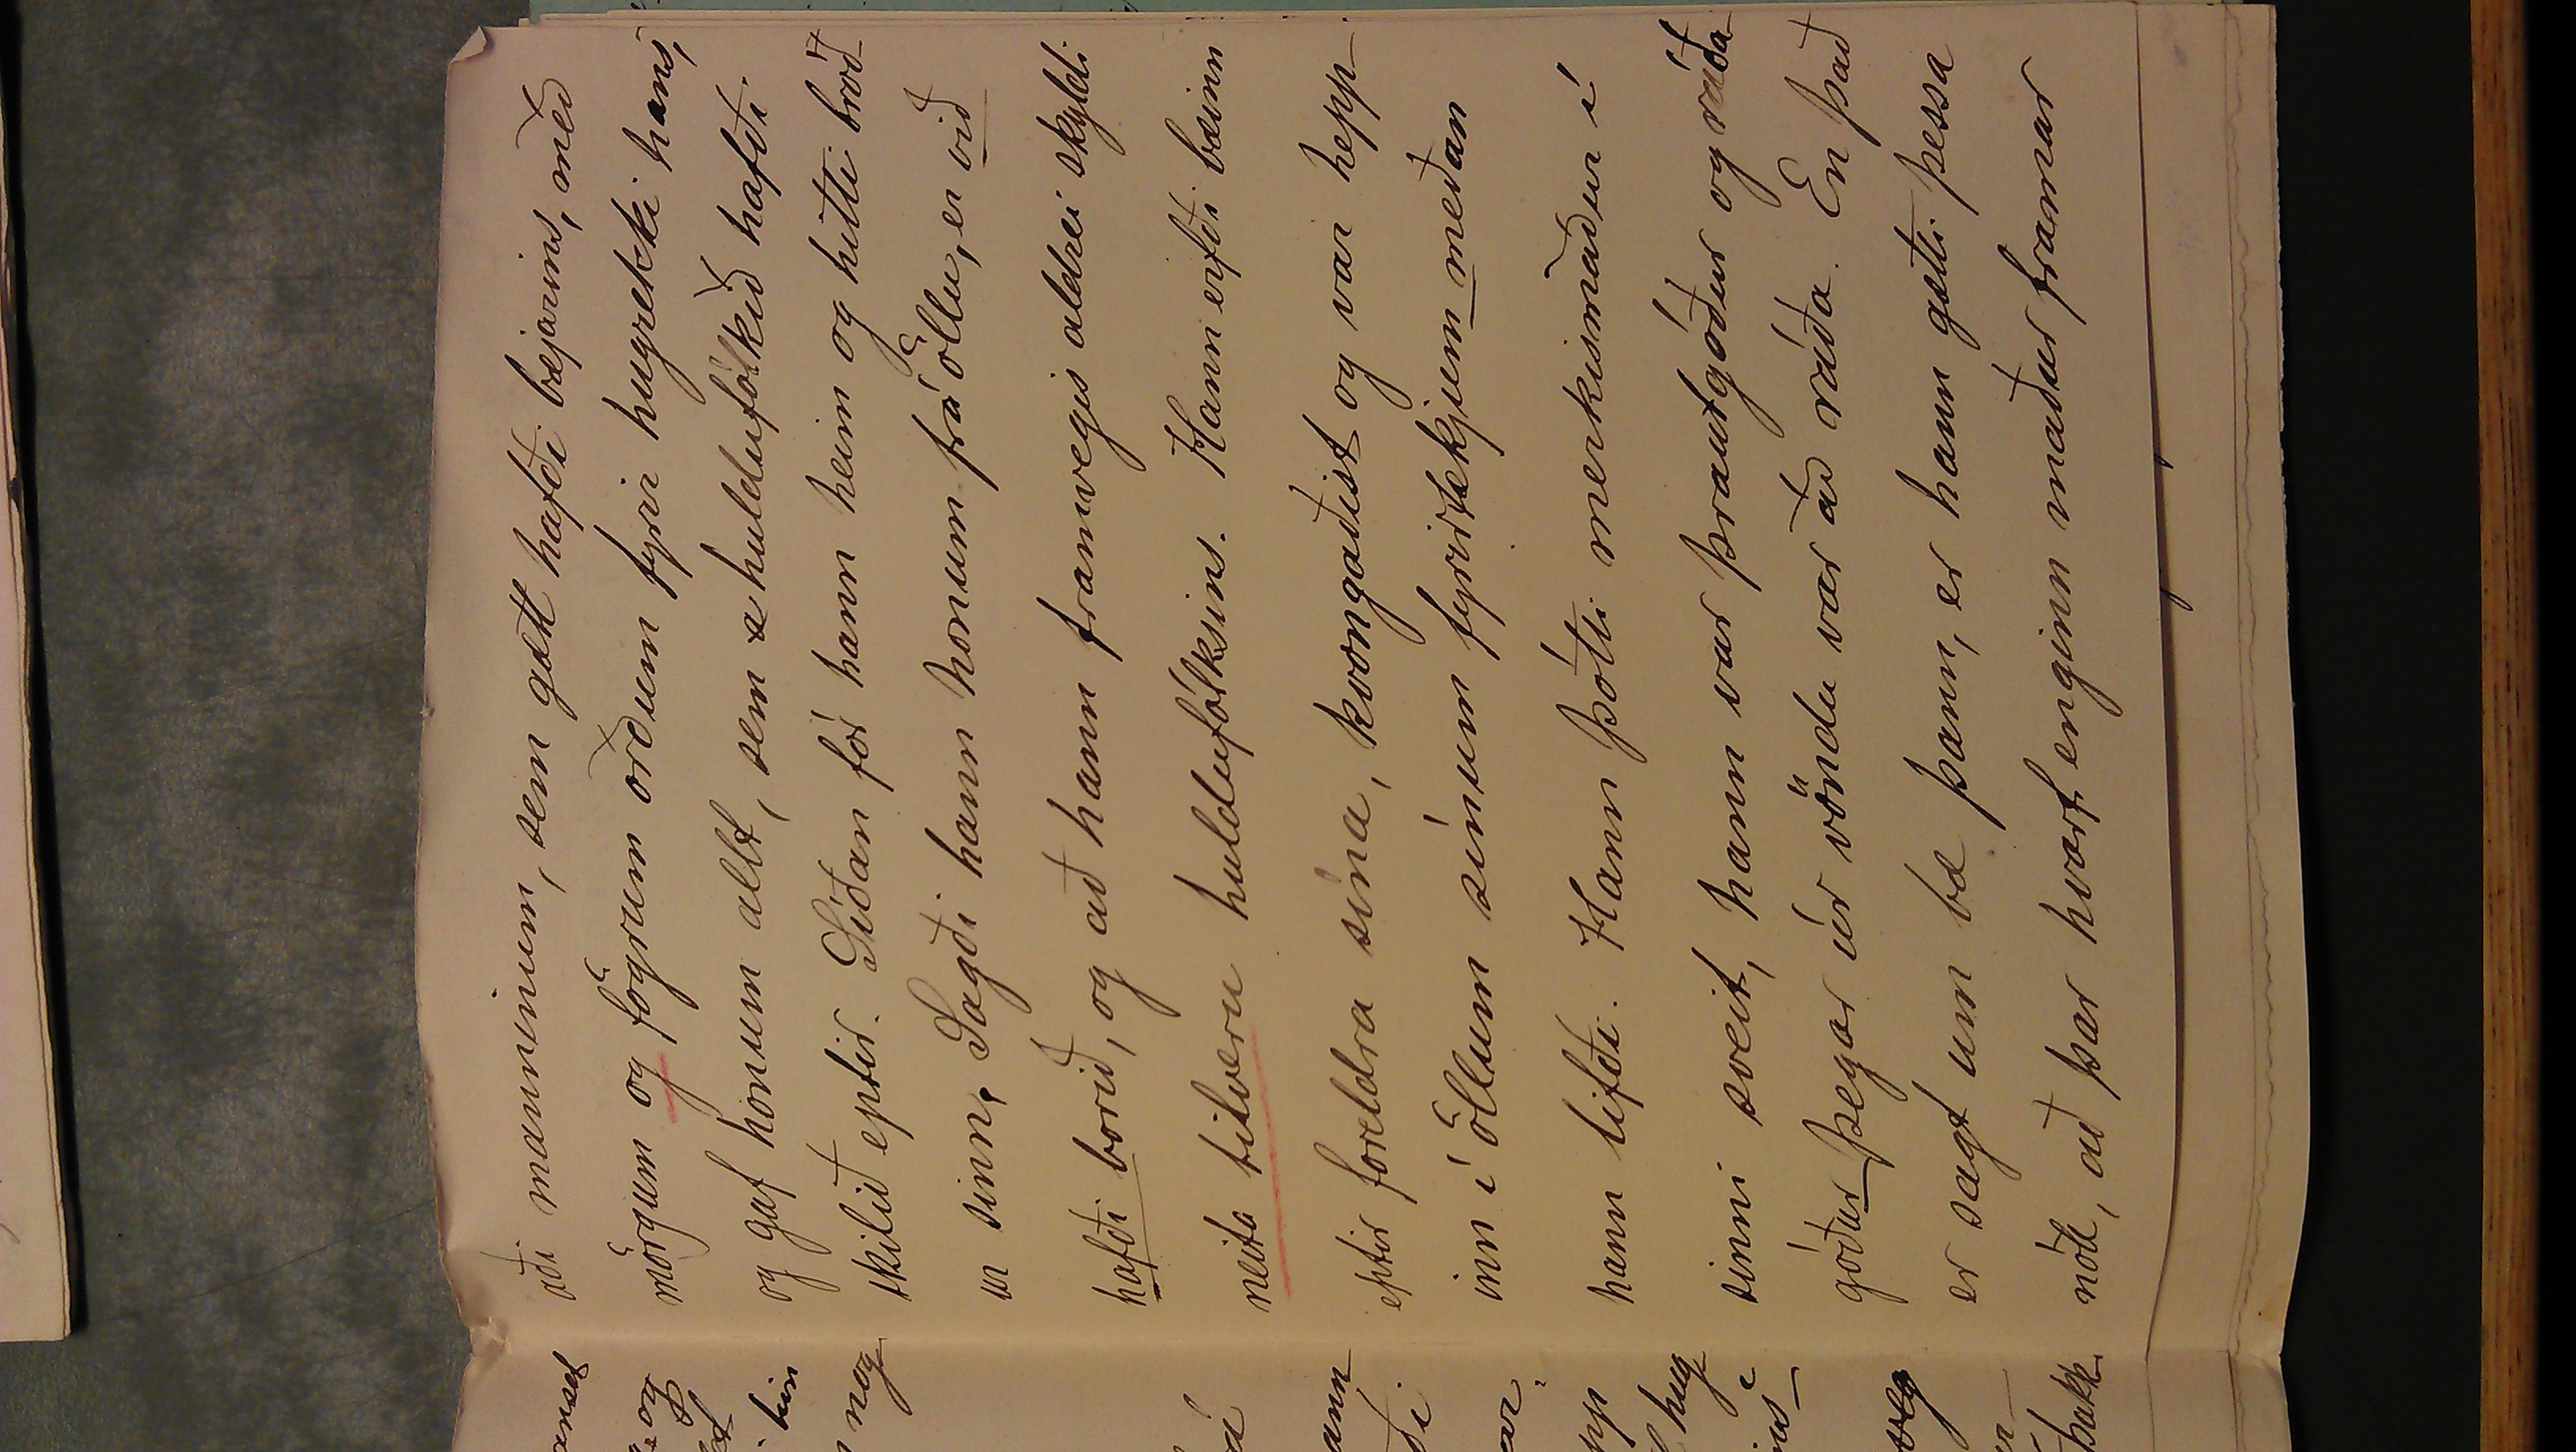 aði manninum, sem gætt hafði bæjarins, með
mörgum og fögrum orðum fyrir hugrekki hans,
og gaf honum allt, sem huldufólkið hafði
skilið eptir. Síðan fór hann heim og hitti bróð
ur sinn. Sagði hann honum frá öllu, er við
hafði borið, og að hann framvegis aldrei skyldi
neita tilveru huldufólksins. Hann erfði bæinn
eptir foreldra sína, kvongaðist og var hepp-
inn í öllum sínum fyrirtækjum meðan
hann lifði. Hann þótti merkismaður í
sinni sveit, hann var þrautgóður og ráða
góður þegar úr vöndu var að ráða. En það
er sagt um bæ þann, er hann gætti þessa
nótt, að þar hvarf enginn maður framar
og
hin
nog
ann
ði
ar.
pp
hug
þakk